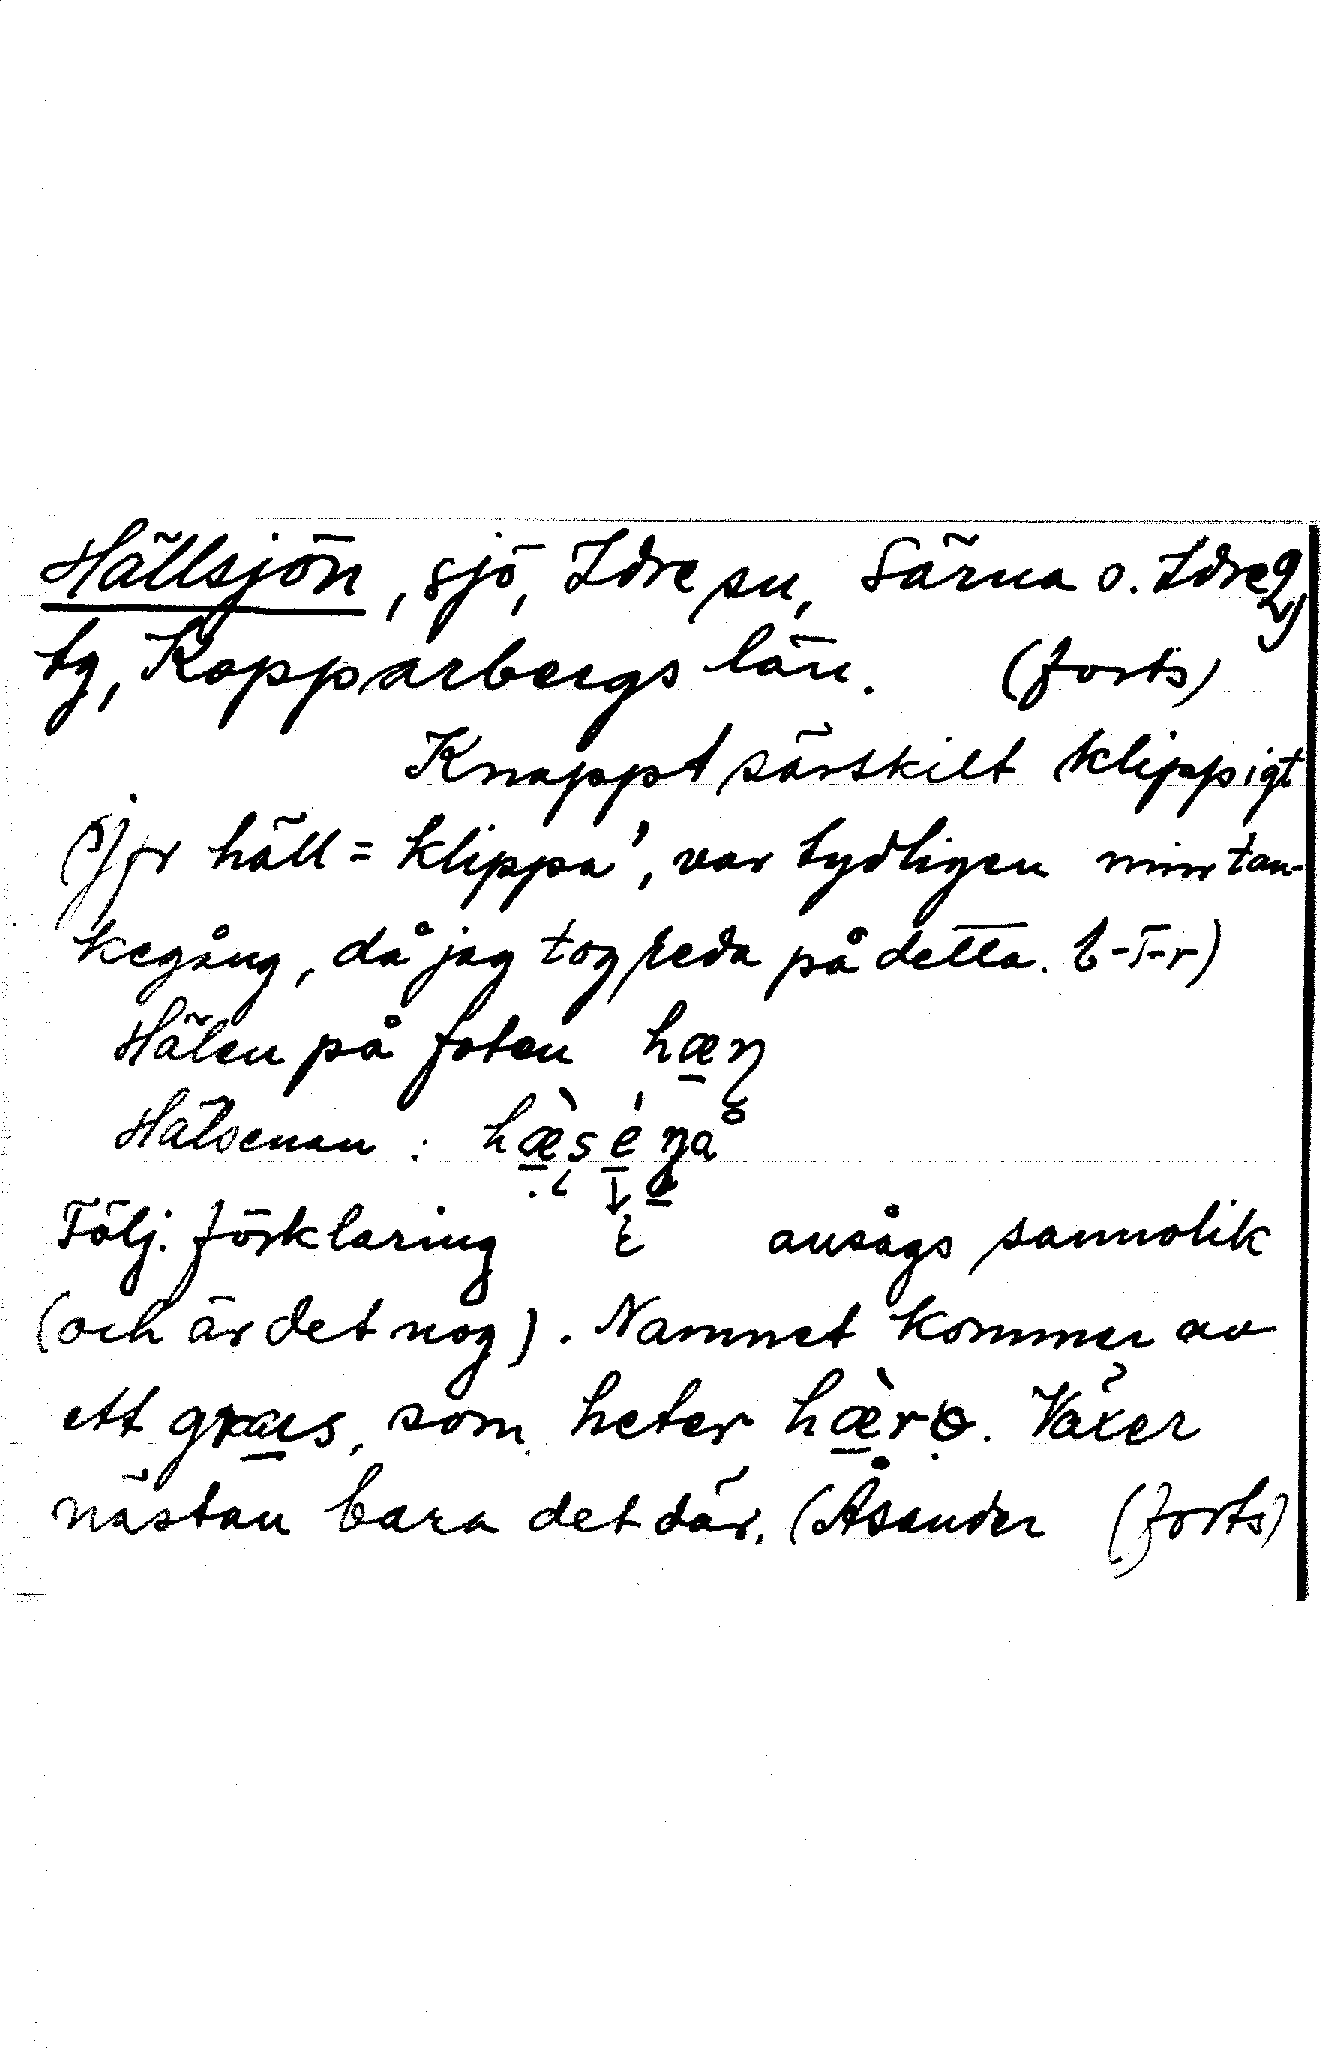 Hällsjön, sjö, Idre sn, Särna o. Idre 2)
tg, Kopparbergs län. (forts)
Knappt särskilt klippigt
(Jfr häll = klippa', var tydligen min tan-
kegång, då jag tog reda på detta. L-T-r)
Hälen på foten hæɳ
Hälsenan : hæ̀sé ɳa
Följ. förklaring ansågs sannolik
(och är det nog). Namnet kommer av
ett græs, som heter hæ̀rɵ. Växer
nästan bara det där. (Åsander (forts)